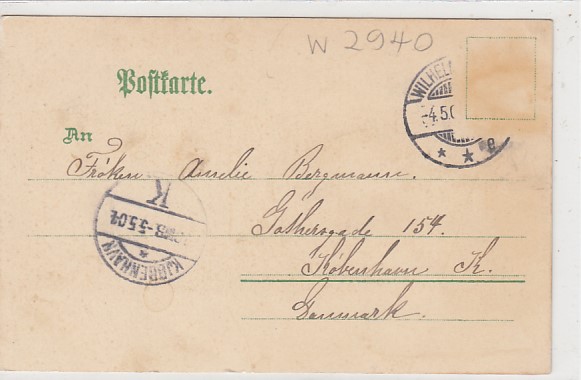 W 2940
Postkarte.
WILHEL
-4.5.0
* * g
An
Frøken Amelie Bergmann.
K
5.5.04
KJØBENHAVN
Gothersgade 154.
København K.
Danmark.